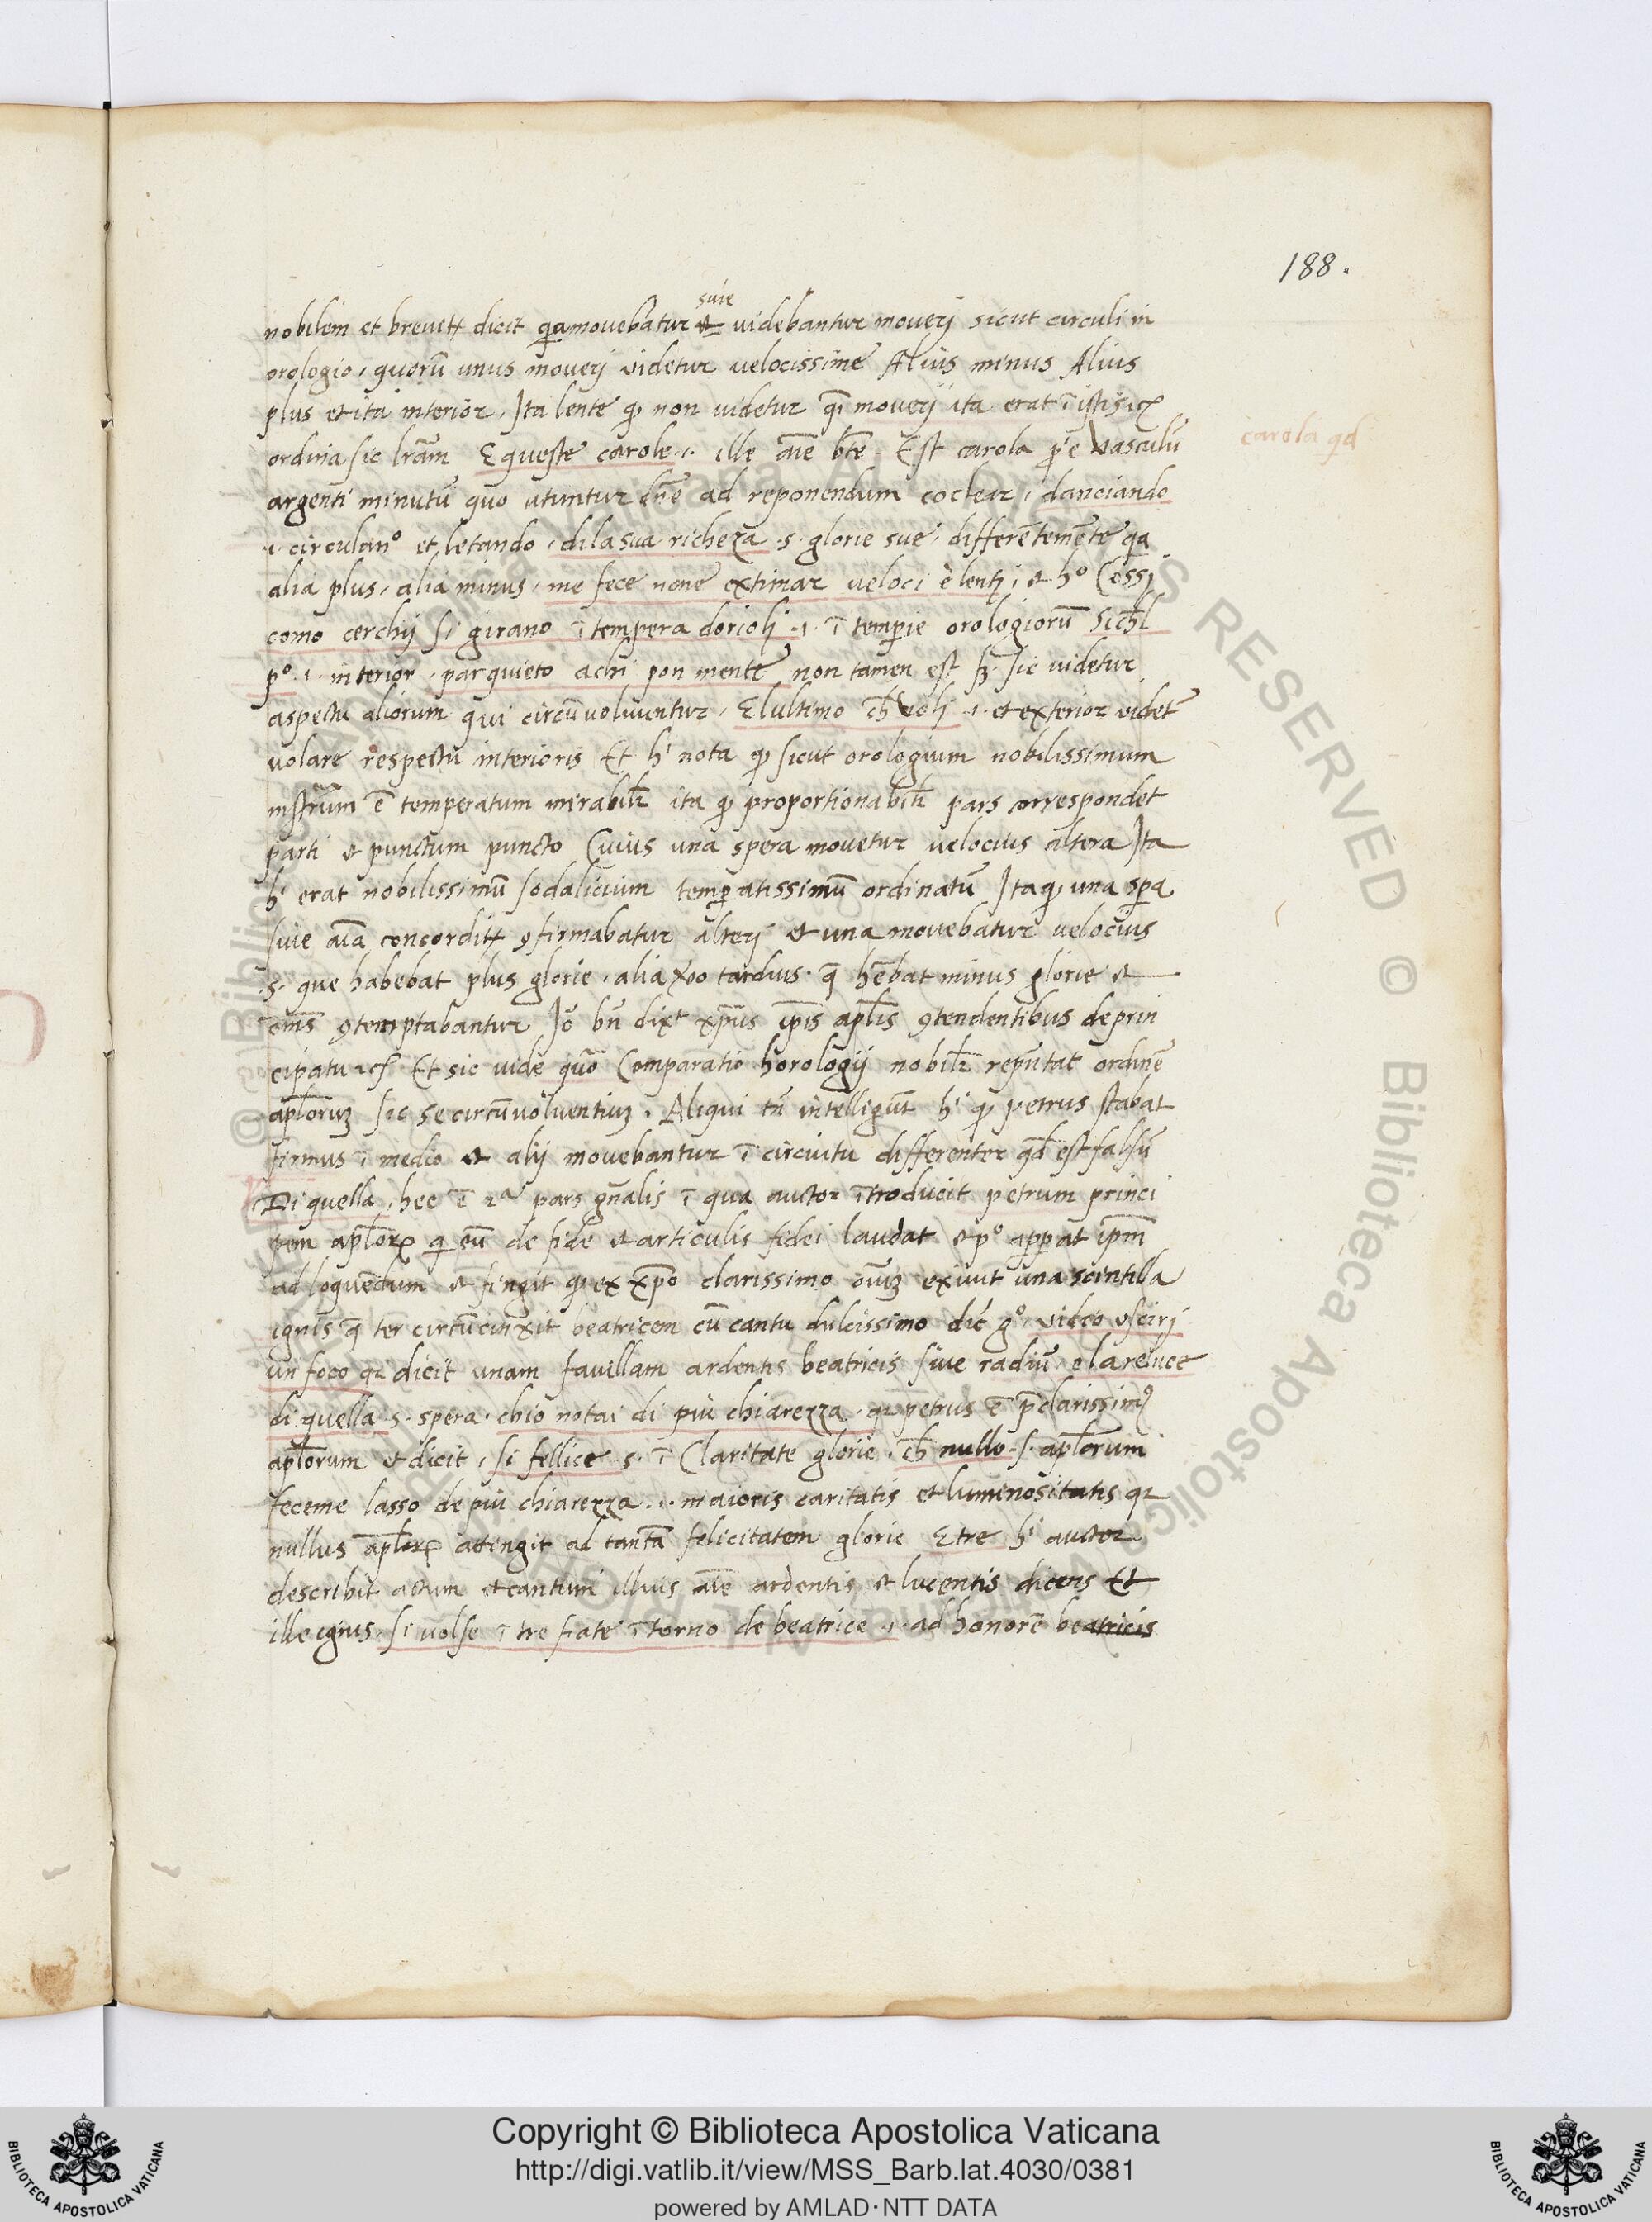 188.
suie
nobilem et breuit dicit qa mouebatur et videbantur moueri sicut circuli in
orologio, quorũ unus moueri videtur velocissime Alius minus Alius
plus et ita interior. Ita lente ꝙ non videtur ꝙ moueri ita erat ĩ istis
ordina sic lr̃am E queste carole .i. ille aĩe bt̃e. Est carola ꝓ e vasculũ
carola qd
argenti minutũ quo utuntur dñe ad reponendum coclear, danciando
.i. circulanº et letando, dila sua richeza .s. glorie sue, differẽtemẽte qa
alia plus, alia minus, me fece none extimar veloci è lenti, et hº Cossi
como cerchij si girano ĩ tempera dorioli .i. ĩ temperie orologiorũ
pº .i. interior, par quieto achi pon mente non tamen est sic videtur
aspectu aliorum qui circũvoluentur, El ultimo ch̃ voli .i. et exterior videt̃
volare respectu interioris Et hⁱ nota ꝙ sicut orologium nobilissimum
instrũm ẽ temperatum mirabilr̃ ita ꝙ proportionabilr̃ pars correspondet
parti et punctum puncto Cuius una spera mouetur velocius altera Ita
hⁱ erat nobilissimũ sodalicium temperatissimũ ordinatũ Ita ꝙ una spa
siue aĩa concordit ꝯfirmabatur alteri et una mouebatur velocius
.s. que habebat plus glorie, alia vº tardius. q̃ hẽbat minus glorie et
om̃s ꝯtemptabantur Iõ bñ dixᵗ xp̃us ip̃is apl̃is ꝯtendentibus de prin
cipatu Et sic vide quõ Comparatio horologij nobilr̃ repñtat ordinẽ
apl̃orum sic se circũvoluentium. Aliqui tñ intelligũt hⁱ ꝙ petrus stabat
firmus ĩ medio et alij mouebantur ĩ circuitu differenter qd̃ est falsũ
Di quella, hec ẽ 2ᵃ pars gñalis ĩ qua auctor ĩtroducit petrum princi
pem apl̃oꝝ q eũ de fide et articulis fidei laudat et pº apparat ip̃m
ad loquẽdum et fingit ꝙ ex xp̃o clarissimo exiuit una scintilla
ignis q̃ ter circũcinxit beatricem cũ cantu dulcissimo dic̃ gº, video vsciri
un foco qa dicit unam fauillam ardentis beatricis siue radiũ elareluce
di quella .s. spera. chio notai di più chiarezza. qa petrus ẽ p̃clarissimꝰ
apl̃orum et dicit, si fellice .s. ĩ Claritate glorie. ch̃ nullo .s. apl̃orum
feceme lasso de più chiarezza .i. maioris caritatis et luminositatis qa
nullus apl̃oꝝ attingit ad tantã felicitatem glorie E tre hⁱ auctor
describit actum et cantum illius aĩe ardentis et lucentis dicens Et
ille ignis. si volse ĩ tre fiate ĩ torno de beatrice .i. ad honorẽ beatricis
Copyright © Biblioteca Apostolica Vaticana
http://digi.vatlib.it/view/MSS_Barb.lat.4030/0381
powered by AMLAD·NTT DATA